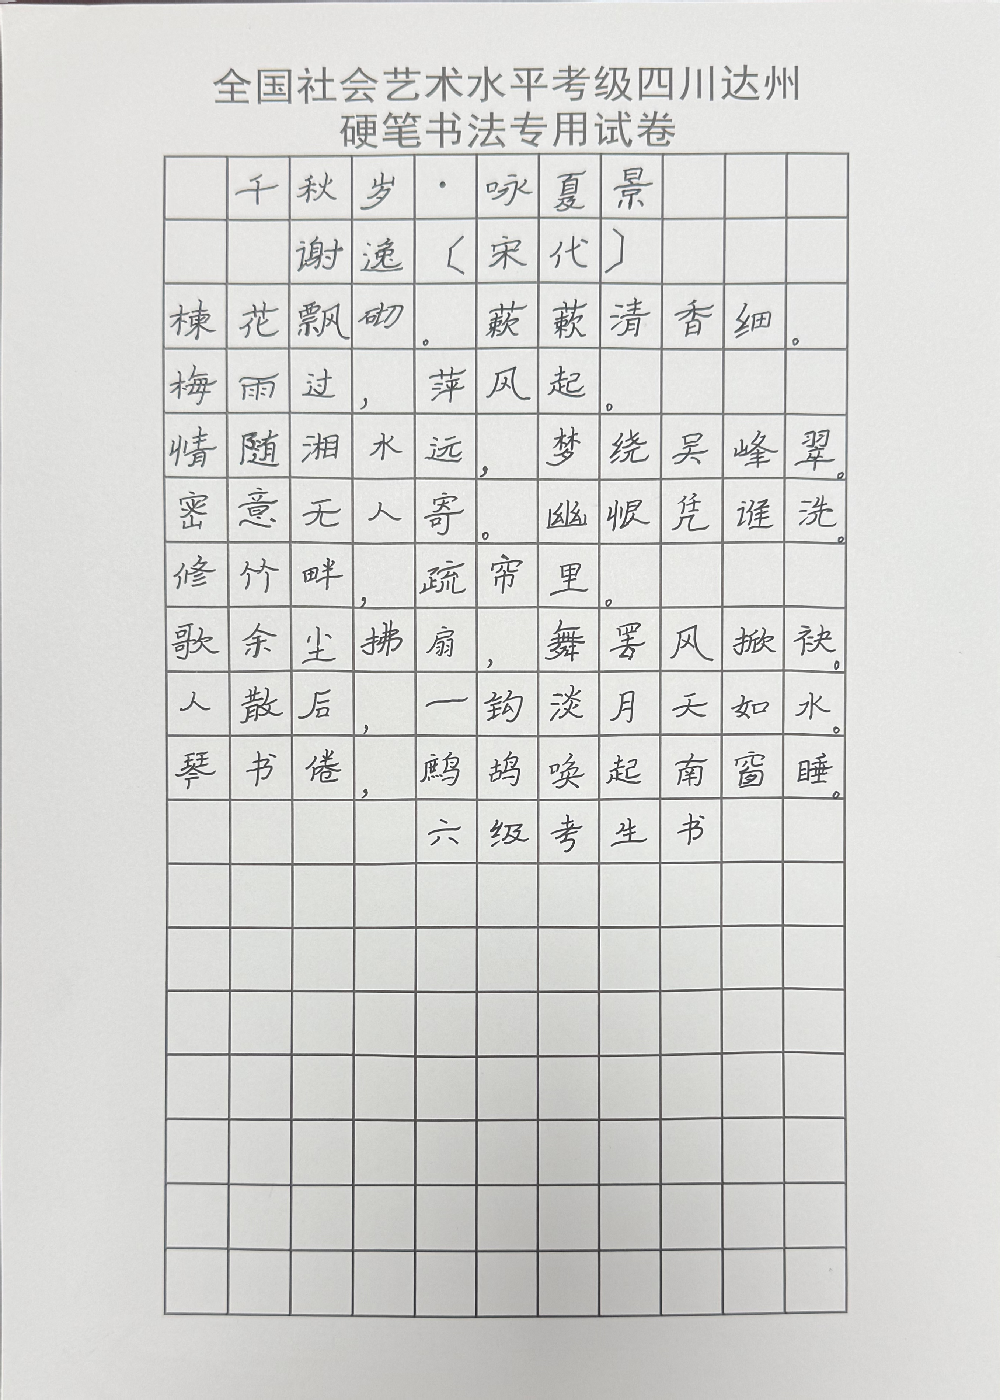 全国社会艺术水平考级四川达州
硬笔书法专用试卷
千秋岁·咏夏景
谢逸〔宋代〕
楝花飘砌。蔌蔌清香细。
梅雨过，萍风起。
情随湘水远，梦绕吴峰翠。
密意无人寄。幽恨凭谁洗。
修竹畔，疏帘里。
歌余尘拂扇，舞罢风掀袂。
人散后，一钩淡月天如水。
琴书倦，鹧鸪唤起南窗睡。
六级考生书